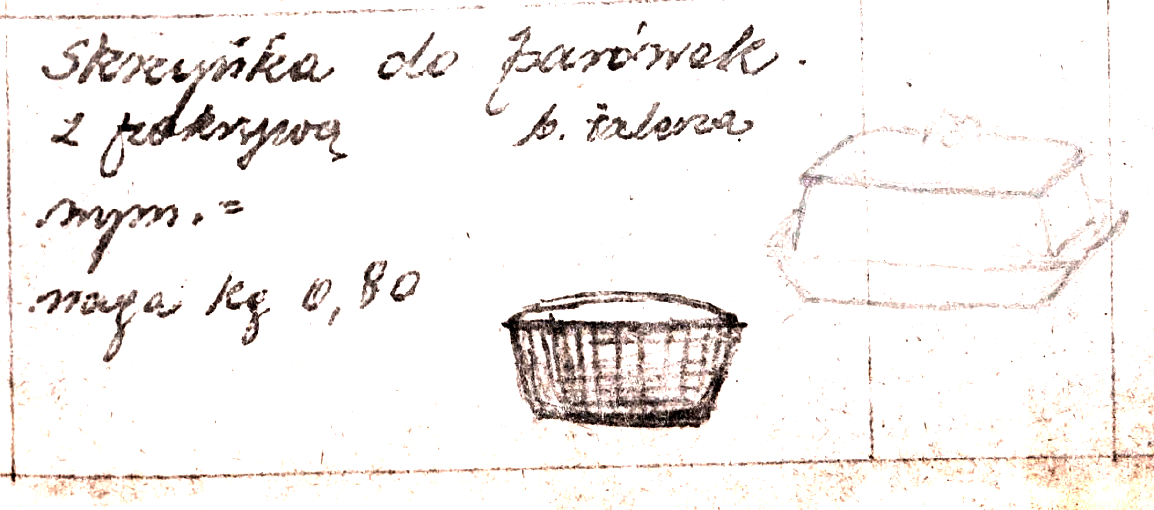 Skrzyńka do parówek.
z pokrywą b. talerza
wym. =
waga kg 0,80